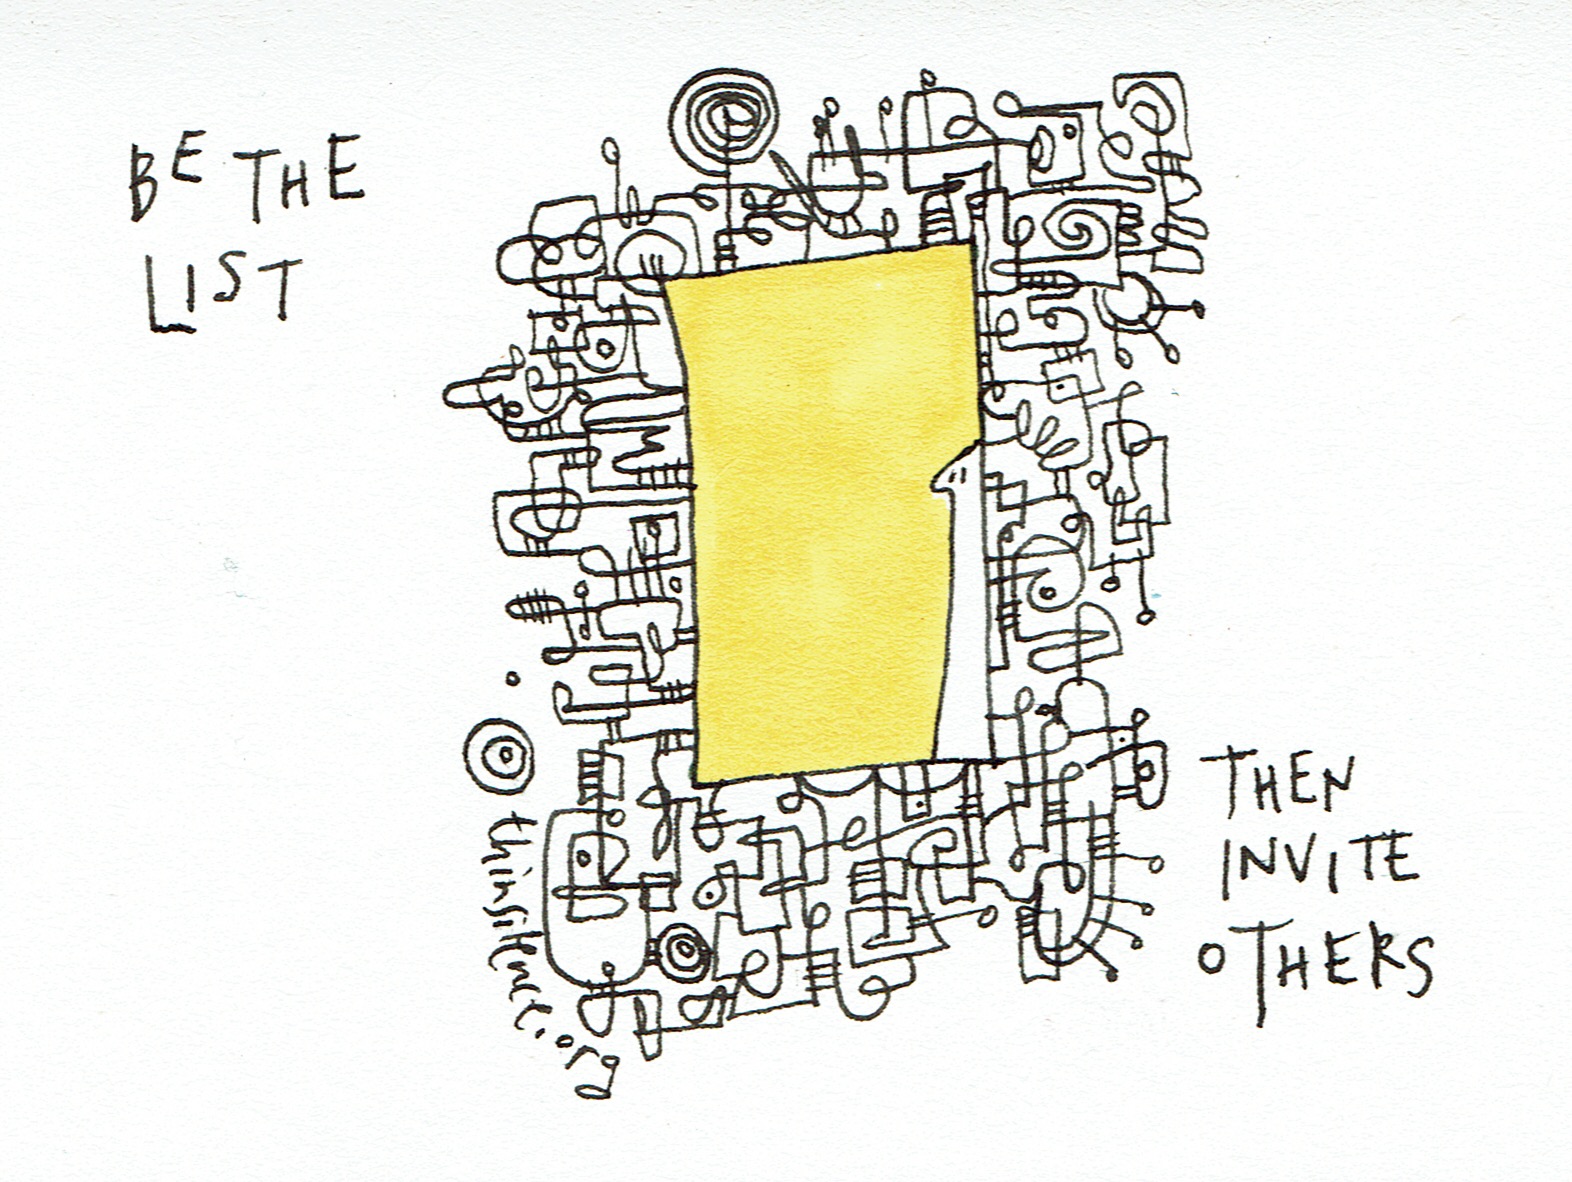 BE THE
LIST
THEN
INVITE
OTHERS
thinsilence.org